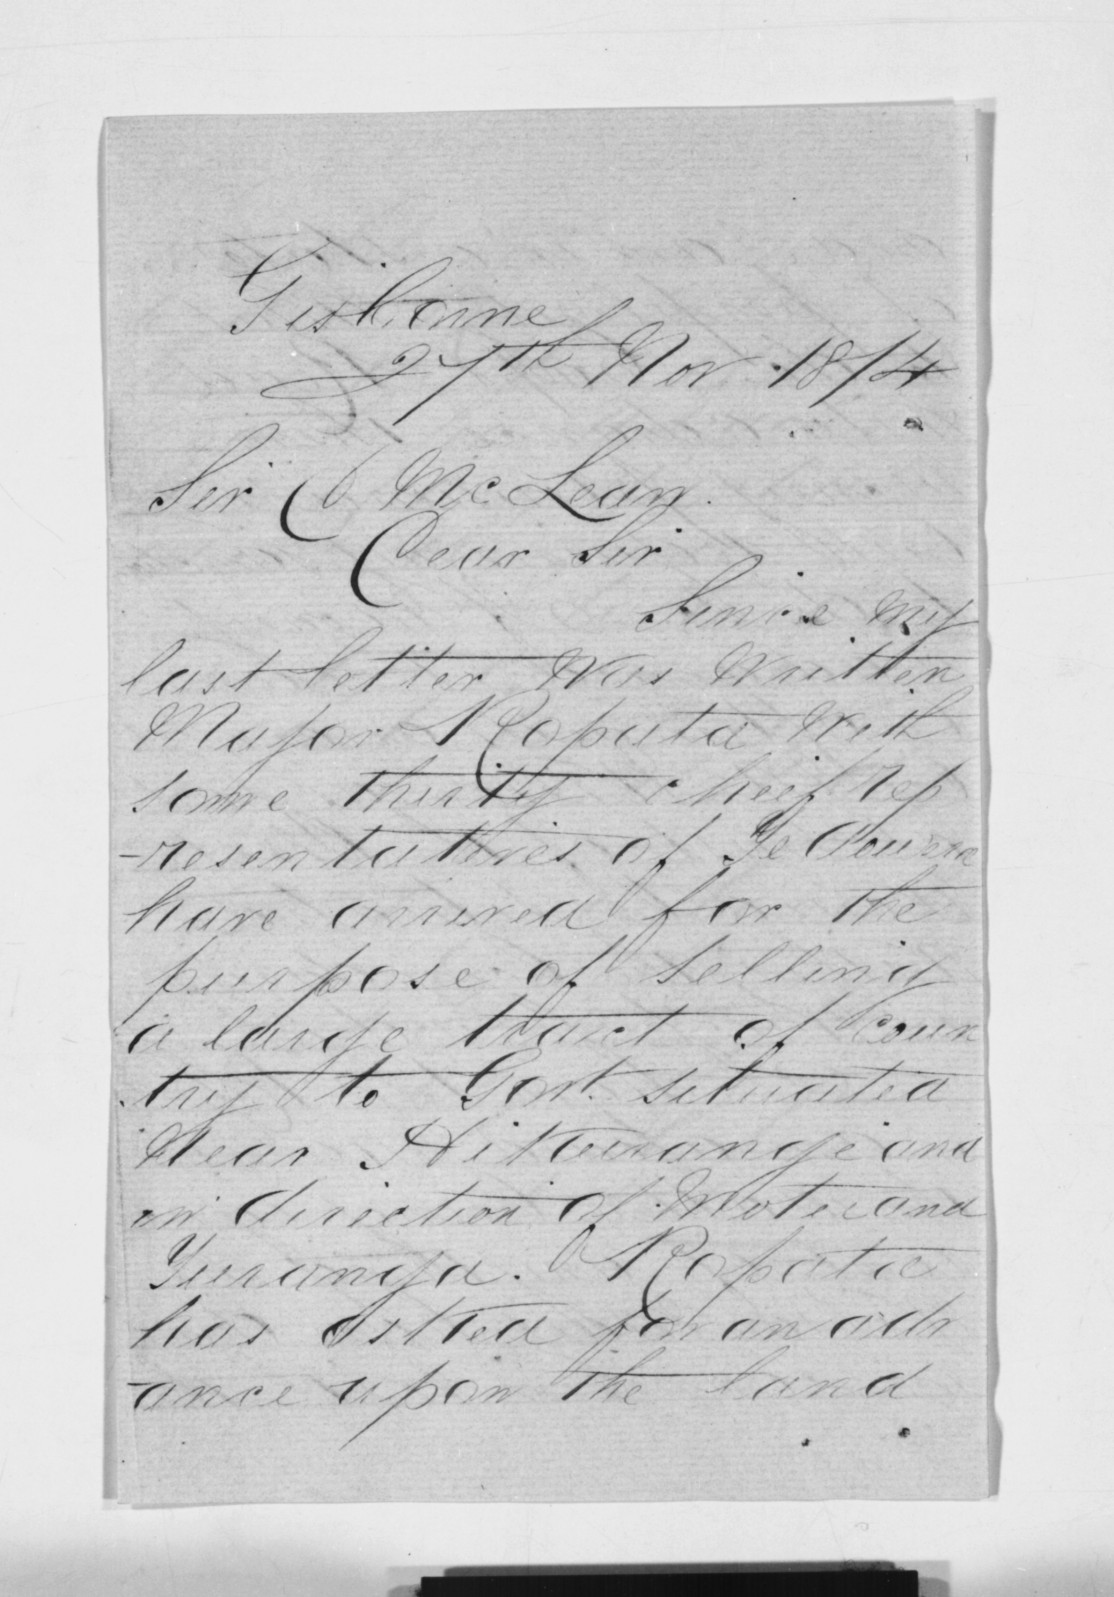 Gisborne
27th Nov 1874
Sir D McLean.
Dear Sir
Since my
last letter was written
Major Ropata with
some thirty cheif rep
-resentatives of
have arrived for the
purpose of selling
a large tract of coun
try to Govt. situated
Near Hikurange and
in direction of Motu and
Turanga. Ropata
has asked for an adv
-ance upon the land